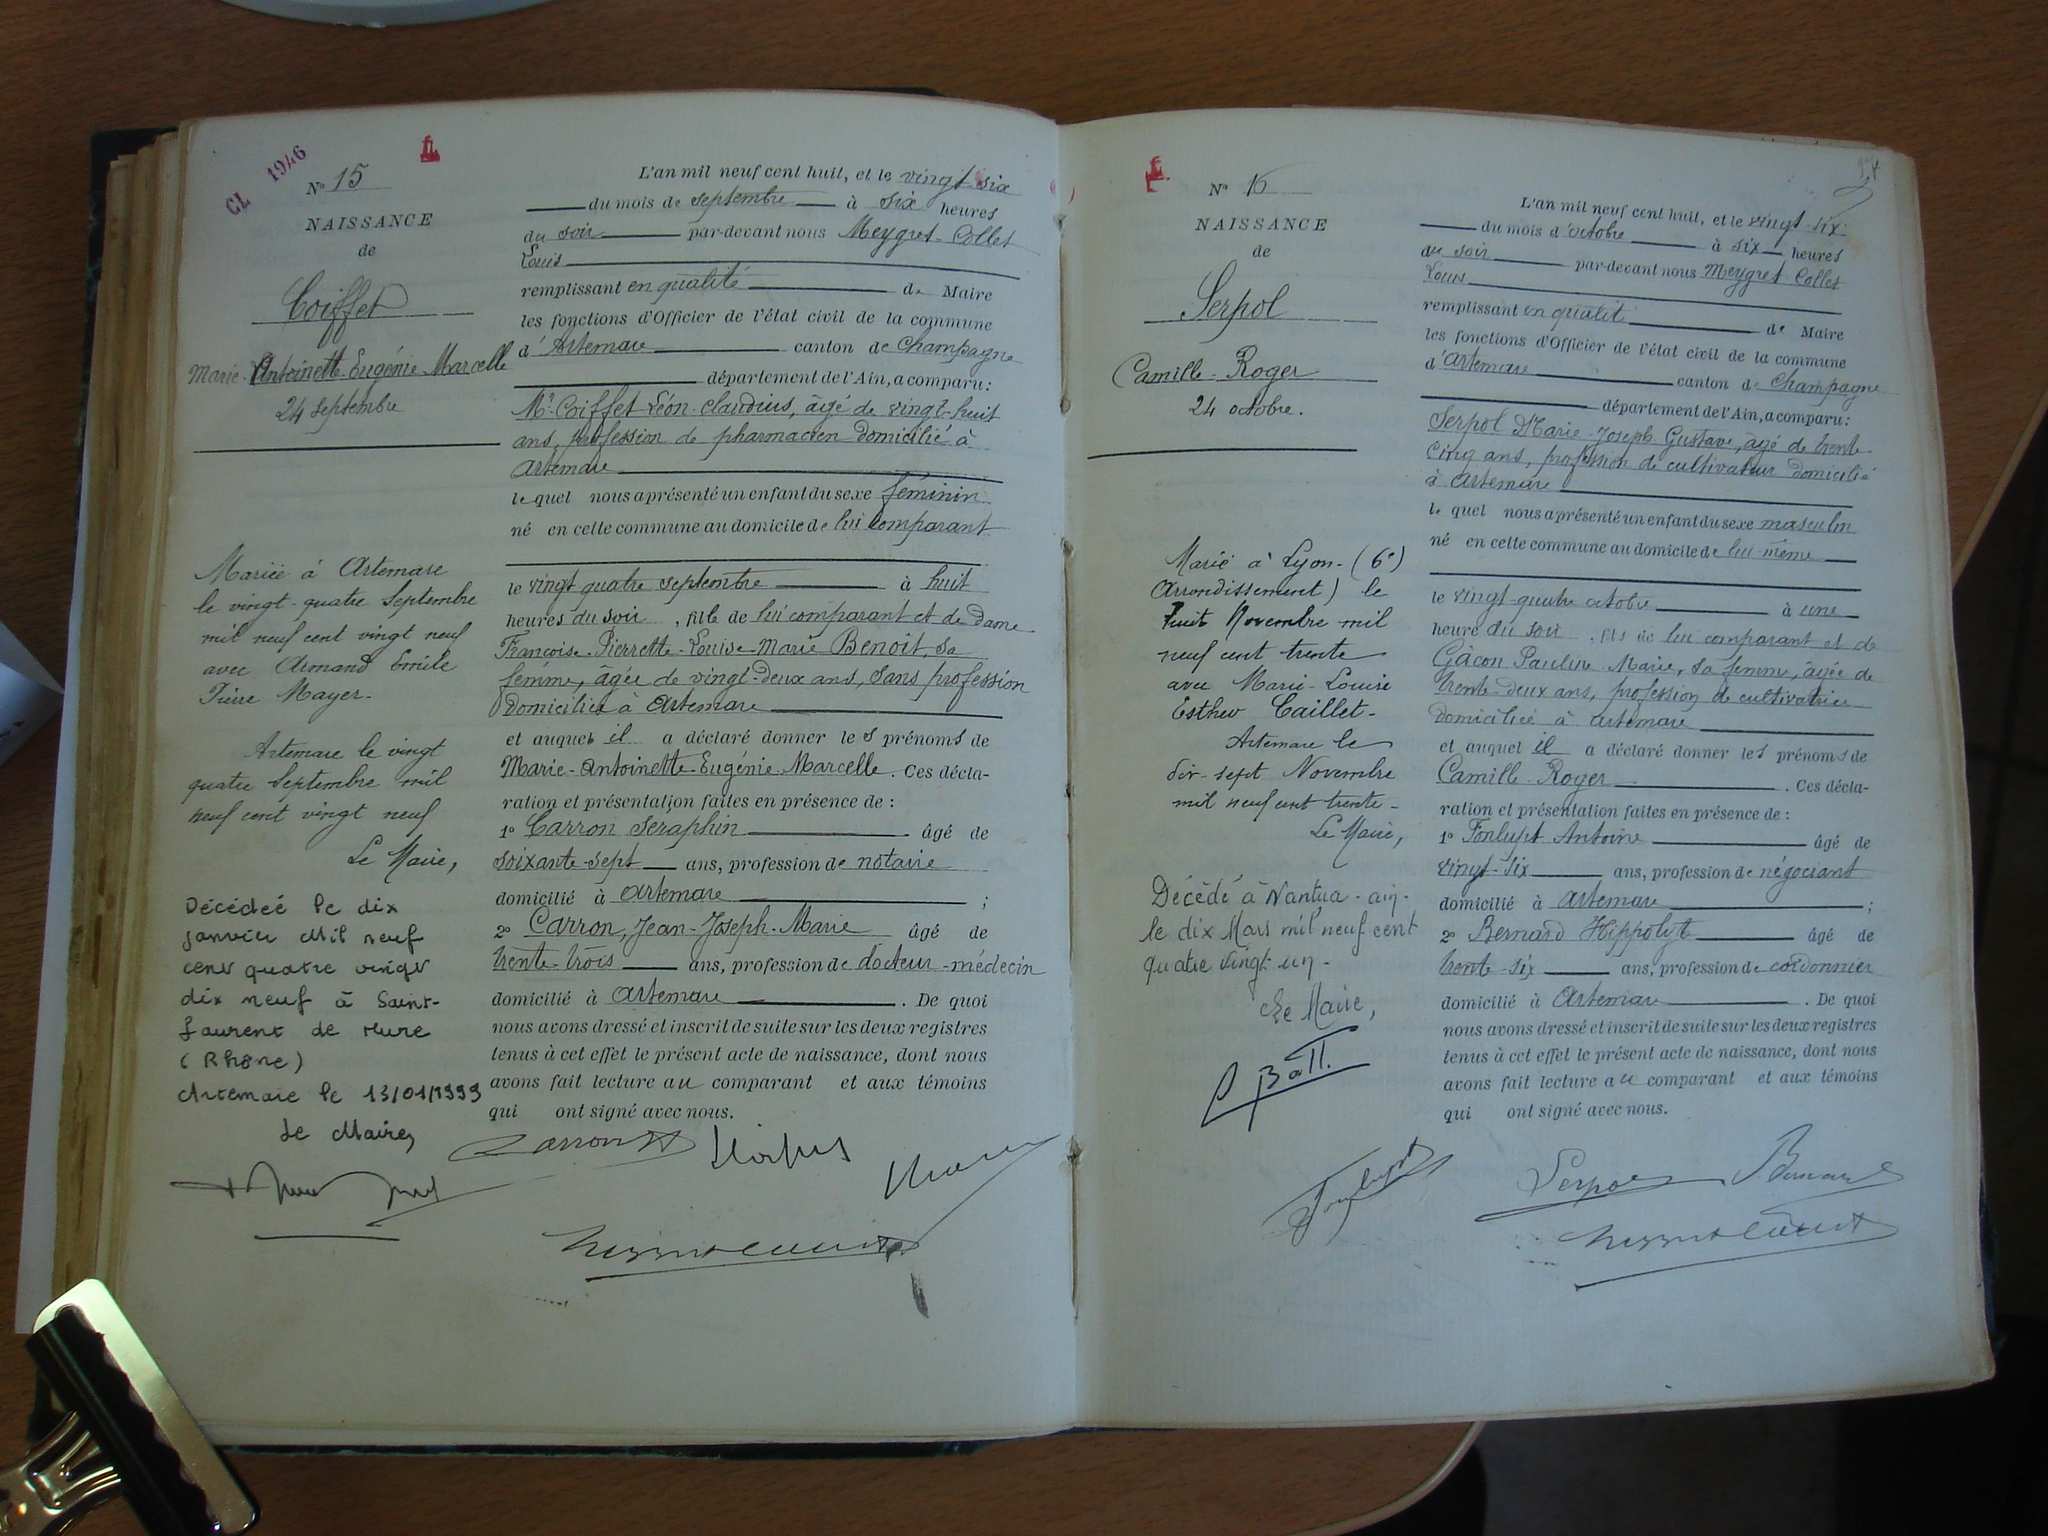 CL 1946
Nº 15
NAISSANCE
de
Coiffet
Marie-Antoinette-Eugénie-Marcelle
24 septembre
Mariée à Artemare
le vingt-quatre Septembre
mil neuf cent vingt neuf
avec Armand Emile
Pierre Mayer-
Artemare le vingt
quatre Septembre mil
neuf cent vingt neuf
Le Maire,
Décédée le dix
janvier Mil neuf
cent quatre vingt
dix neuf à Saint-
Laurent de Mure
(Rhône)
Artemare le 13/01/1999
Le Maire,
L'an mil neuf cent huit, et le vingt-six
du mois de septembre à six heures
du soir par-devant nous Meygret-Collet
Louis
remplissant en qualité de Maire
les fonctions d'Officier de l'état civil de la commune
d'Artemare canton de Champagne
département de l'Ain, a comparu:
Mr Coiffet Léon-Claudius, âgé de vingt-huit
ans, profession de pharmacien domicilié à
Artemare
lequel nous a présenté un enfant du sexe féminin
né en cette commune au domicile de lui comparant
le vingt quatre septembre à huit
heures du soir, fille de lui comparant et de dame
Francoise-Pierrette-Louise-Marie Benoit, sa
femme, âgée de vingt-deux ans, sans profession
domiciliée à Artemare
et auquel il a déclaré donner les prénoms de
Marie-Antoinette-Eugénie-Marcelle. Ces décla-
ration et présentation faites en présence de :
1º Carron Séraphin âgé de
soixante-sept ans, profession de notaire
domicilié à Artemare ;
2º Carron, Jean-Joseph-Marie âgé de
trente-trois ans, profession de docteur-médecin
domicilié à Artemare . De quoi
nous avons dressé et inscrit de suite sur les deux registres
tenus à cet effet le présent acte de naissance, dont nous
avons fait lecture au comparant et aux témoins
qui ont signé avec nous.
Nº 16
NAISSANCE
de
Serpol
Camille-Roger
24 octobre.
Marié à Lyon-(6e)
Arrondissement) le
huit Novembre mil
neuf cent trente
avec Marie-Louise
Esther Caillet-
Artemare le
dix-sept Novembre
mil neuf cent trente-
Le Maire,
Décédé à Nantua-ain-
le dix Mars mil neuf cent
quatre vingt-un-
Le Maire,
L'an mil neuf cent huit, et le vingt-six
du mois d'octobre à six heures
du soir par-devant nous Meygret Collet
Louis
remplissant en qualité de Maire
les fonctions d'Officier de l'état civil de la commune
d'Artemare canton de Champagne
département de l'Ain, a comparu:
Serpol Marie-Joseph Gustave, âgé de trente
cinq ans, profession de cultivateur domicilié
à Artemare
lequel nous a présenté un enfant du sexe masculin
né en cette commune au domicile de lui-même
le vingt-quatre octobre à une
heure du soir, fils de lui comparant et de
Gâcon Pauline Marie, sa femme, âgée de
trente-deux ans, profession de cultivatrice
domiciliée à Artemare
et auquel il a déclaré donner les prénoms de
Camille-Roger . Ces décla-
ration et présentation faites en présence de :
1º Fonlupt Antoine âgé de
vingt-six ans, profession de négociant
domicilié à Artemare ;
2º Bernard Hippolyte âgé de
trente-six ans, profession de cordonnier
domicilié à Artemare . De quoi
nous avons dressé et inscrit de suite sur les deux registres
tenus à cet effet le présent acte de naissance, dont nous
avons fait lecture au comparant et aux témoins
qui ont signé avec nous.
Serpol Bernard